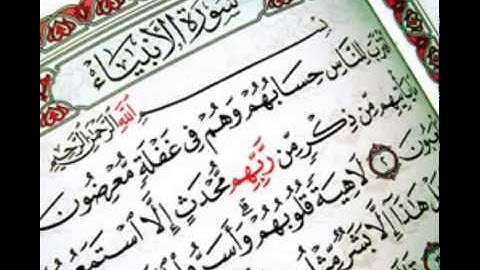 سُورَةُ الأَنبِيَاءِ
بِسْمِ اللَّهِ الرَّحْمَٰنِ الرَّحِيمِ
لِلنَّاسِ حِسَابُهُمْ وَهُمْ فِي غَفْلَةٍ مُّعْرِضُونَ
يَأْتِيهِم مِّن ذِكْرٍ مِّن رَّبِّهِم مُّحْدَثٍ إِلَّا اسْتَمَعُ
٢ لَاهِيَةً قُلُوبُهُمْ وَأَسَرُّوا
هَٰذَا إِلَّا بَشَرٌ مِّثْلُ